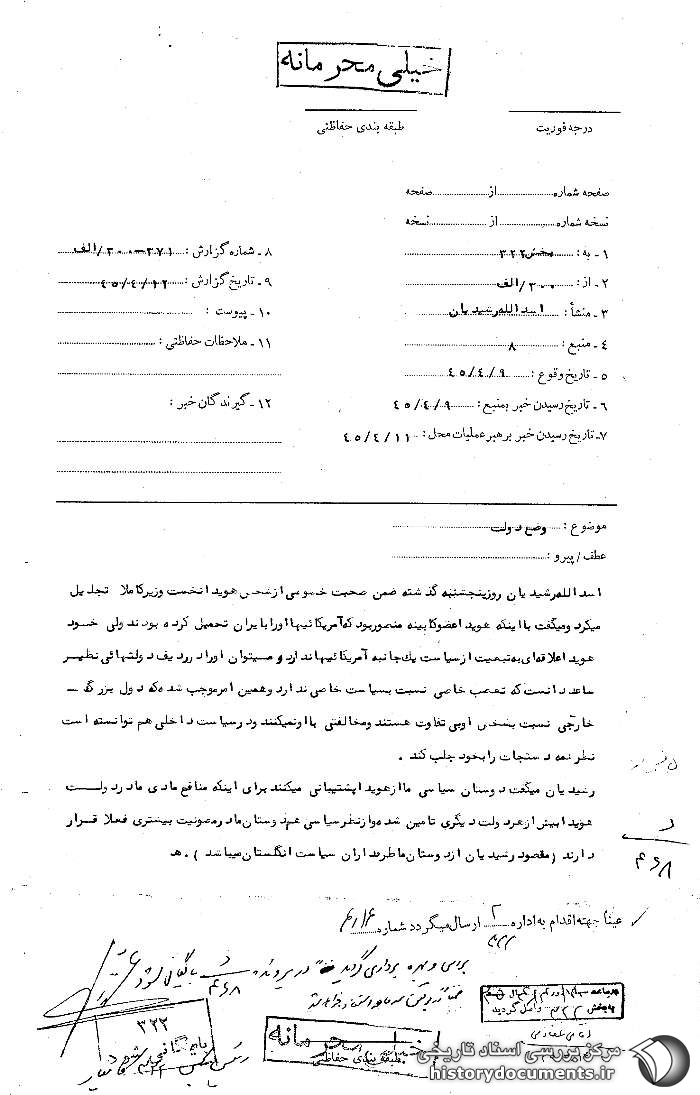 خیلی محرمانه
درجه فوریت
طبقه بندی حفاظتی
صفحه شماره از صفحه
نسخه شماره از نسخه
۱ - به : بخش ۳۲۲
۲ - از : ۳۰۰/الف
۳ - منشأ : اسداله رشیدیان
۴ - منبع : ۸
۵ - تاریخ وقوع : ۴۵/۴/۹
۶ - تاریخ رسیدن خبر بمنبع : ۴۵/۴/۹
۷- تاریخ رسیدن خبر برهبر عملیات محل : ۴۵/۴/۱۱
۸ - شماره گزارش : ۳۰۰-۳۷۱/الف
۹ - تاریخ گزارش : ۴۵/۴/۱۲
۱۰ - پیوست :
۱۱ - ملاحظات حفاظتی :
۱۲ - گیرندگان خبر :
موضوع : وضع دولت
عطف / پیرو :
اسداله رشیدیان روز پنجشنبه گذشته ضمن صحبت خصوصی از شخص هویدا نخست وزیر کاملا تجلیل
میکرد و میگفت با اینکه هویدا عضو کابینه منصور بود که آمریکائیها اورا بایران تحمیل کرده بودند ولی خود
هویدا علاقه‌ای به تبعیت از سیاست یک جانبه آمریکائیها ندارد و میتوان اورا در ردیف دولتهائی نظیر
ساعد دانست که تعصب خاصی نسبت بسیاست خاصی ندارد و همین امر موجب شده که دول بزرگ -
خارجی نسبت بشخص او بی تفاوت هستند و مخالفتی با او نمیکنند و در سیاست داخلی هم توانسته است
نظر همه دستجات را بخود جلب کند .
رشیدیان میگفت دوستان سیاسی ما از هویدا پشتیبانی میکنند برای اینکه منافع مادی ما در دولت
هویدا بیش از هر دولت دیگری تامین شده و از نظر سیاسی هم دوستان ما در مصونیت بیشتری فعلا قرار
دارند ( مقصود رشیدیان از دوستان ما طرفداران سیاست انگلستان میباشد ) . هـ
د
۴۶۸
عیناً جهته اقدام به اداره ارسال میگردد شماره
بررسی و بهره برداری گردید در پرونده د ۴۶۸ بایگانی شود
۳۲۲
خیلی محرمانه
طبقه بندی حفاظتی
مرکز بررسی اسناد تاریخی
historydocuments.ir